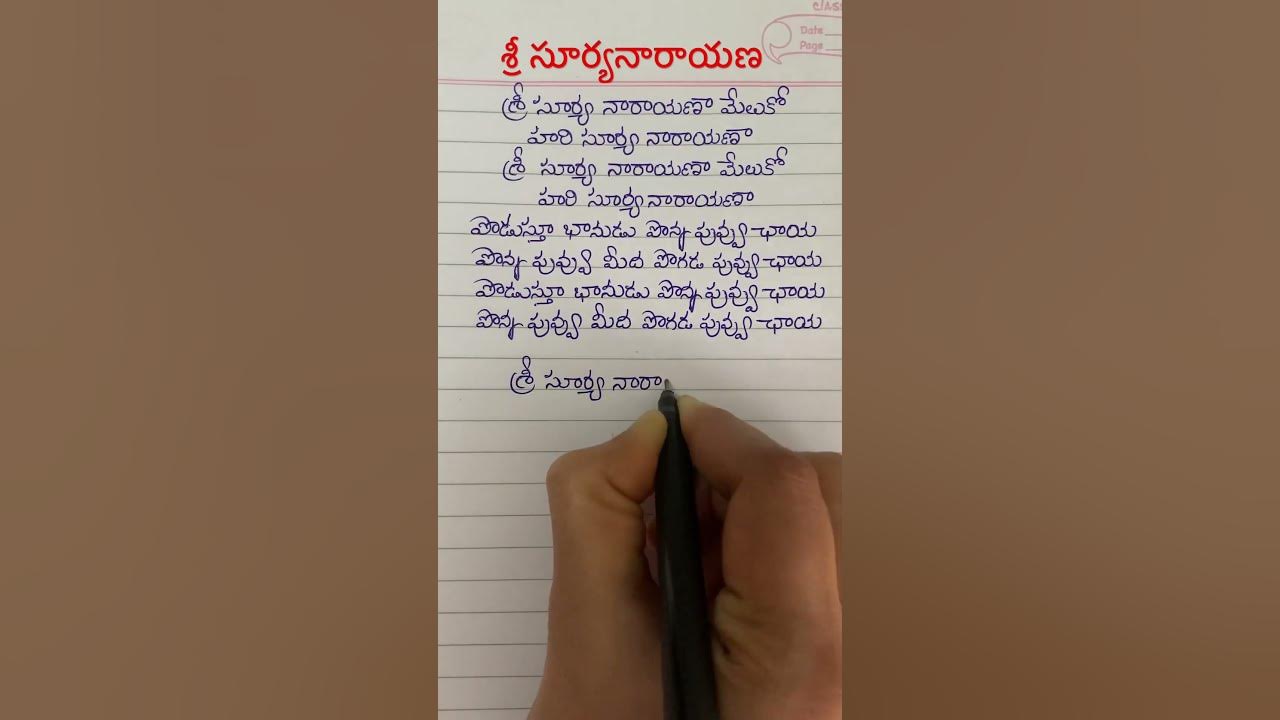 CLASS
Date
Page
శ్రీ సూర్యనారాయణ
శ్రీ సూర్య నారాయణా మేలుకో
హరి సూర్య నారాయణా
శ్రీ సూర్య నారాయణా మేలుకో
హరి సూర్య నారాయణా
పొడుస్తూ భానుడు పొన్న పువ్వు ఛాయ
పొన్న పువ్వు మీద పొగడ పువ్వు ఛాయ
పొడుస్తూ భానుడు పొన్న పువ్వు ఛాయ
పొన్న పువ్వు మీద పొగడ పువ్వు ఛాయ
శ్రీ సూర్య నారా